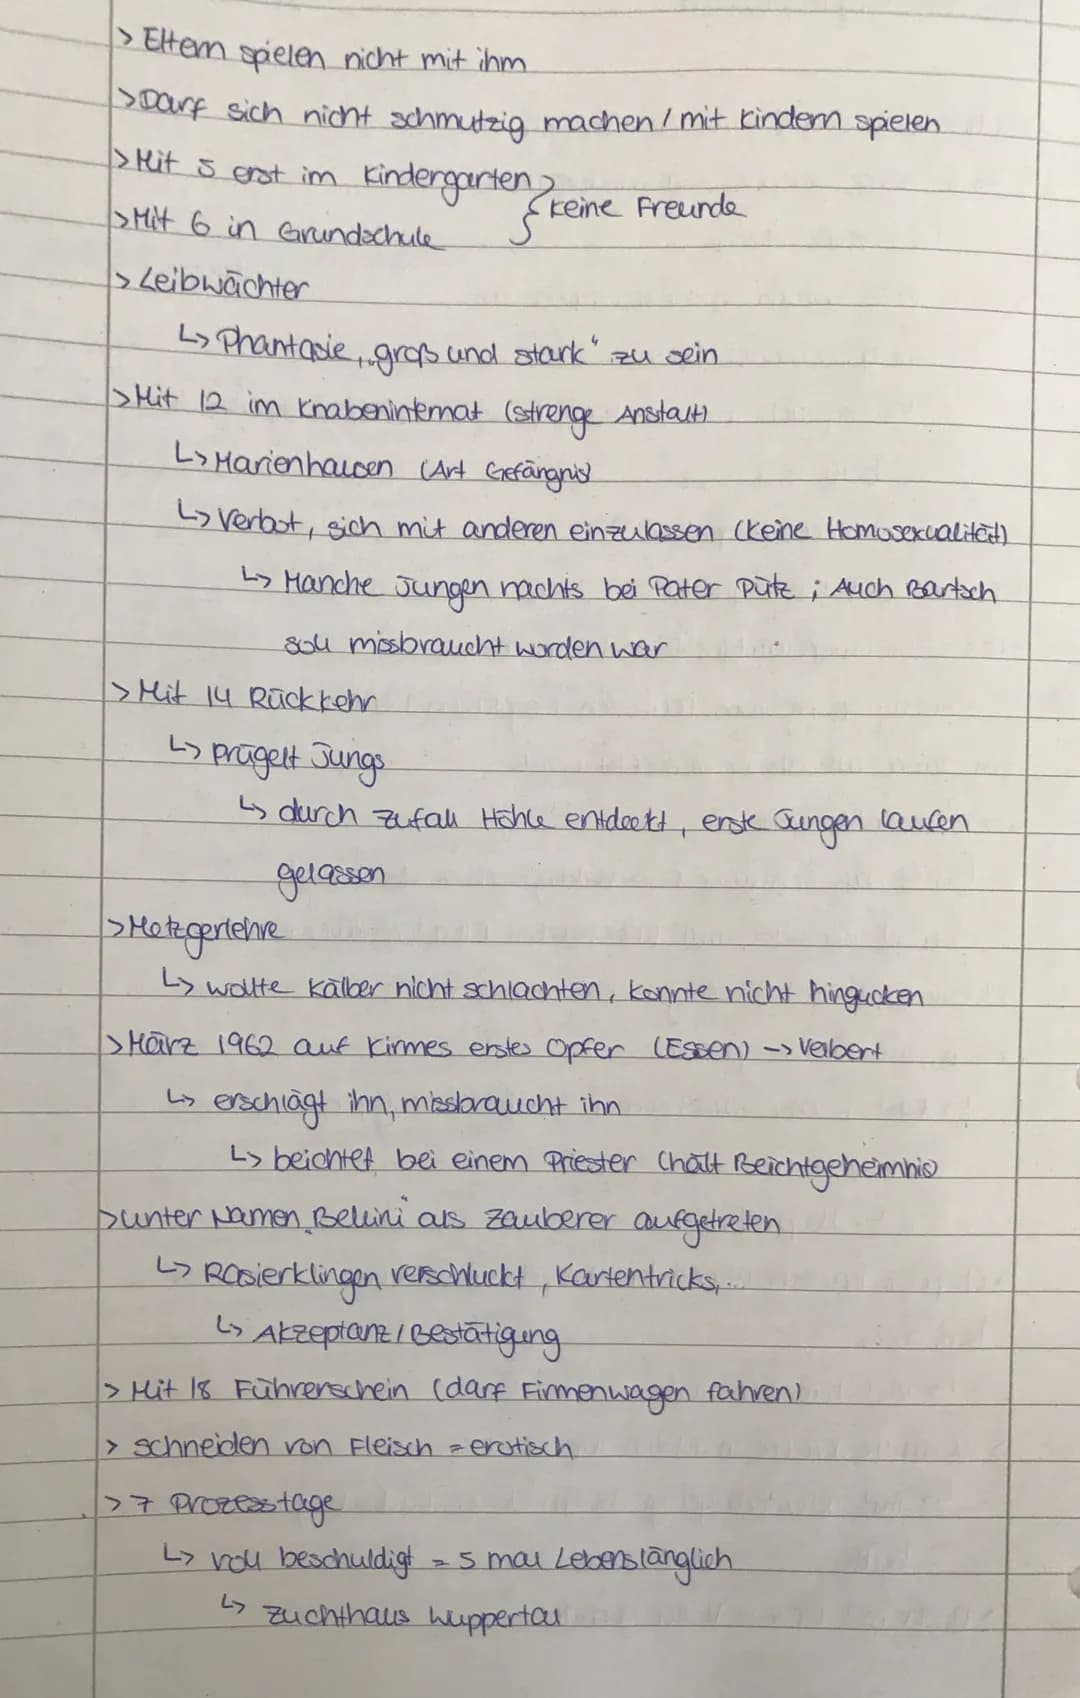 > Eltern spielen nicht mit ihm
> Darf sich nicht schmutzig machen / mit Kindern spielen
> Mit 5 erst im Kindergarten
} keine Freunde
> Mit 6 in Grundschule
> Leibwächter
↳ Phantasie, „groß und stark“ zu sein
> Mit 12 im Knabeninternat (strenge Anstalt)
↳ Marienhausen (Art Gefängnis)
↳ Verbot, sich mit anderen einzulassen (keine Homosexualität)
↳ Manche Jungen nachts bei Pater Pütz ; Auch Bartsch
soll missbraucht worden war
> Mit 14 Rückkehr
↳ prügelt Jungs
↳ durch Zufall Höhle entdeckt, erste Jungen laufen
gelassen
> Metzgerlehre
↳ wollte Kälber nicht schlachten, konnte nicht hingucken
> März 1962 auf Kirmes erstes Opfer (Essen) -> Velbert
↳ erschlägt ihn, missbraucht ihn
↳ beichtet bei einem Priester (hält Beichtgeheimnis
> unter Namen „Bellini“ als Zauberer aufgetreten
↳ Rasierklingen verschluckt, Kartentricks,...
↳ Akzeptanz / Bestätigung
> Mit 18 Führerschein (darf Firmenwagen fahren)
> schneiden von Fleisch = erotisch
> 7 Prozesstage
↳ voll beschuldigt = 5 mal Lebenslänglich
↳ Zuchthaus Wuppertal